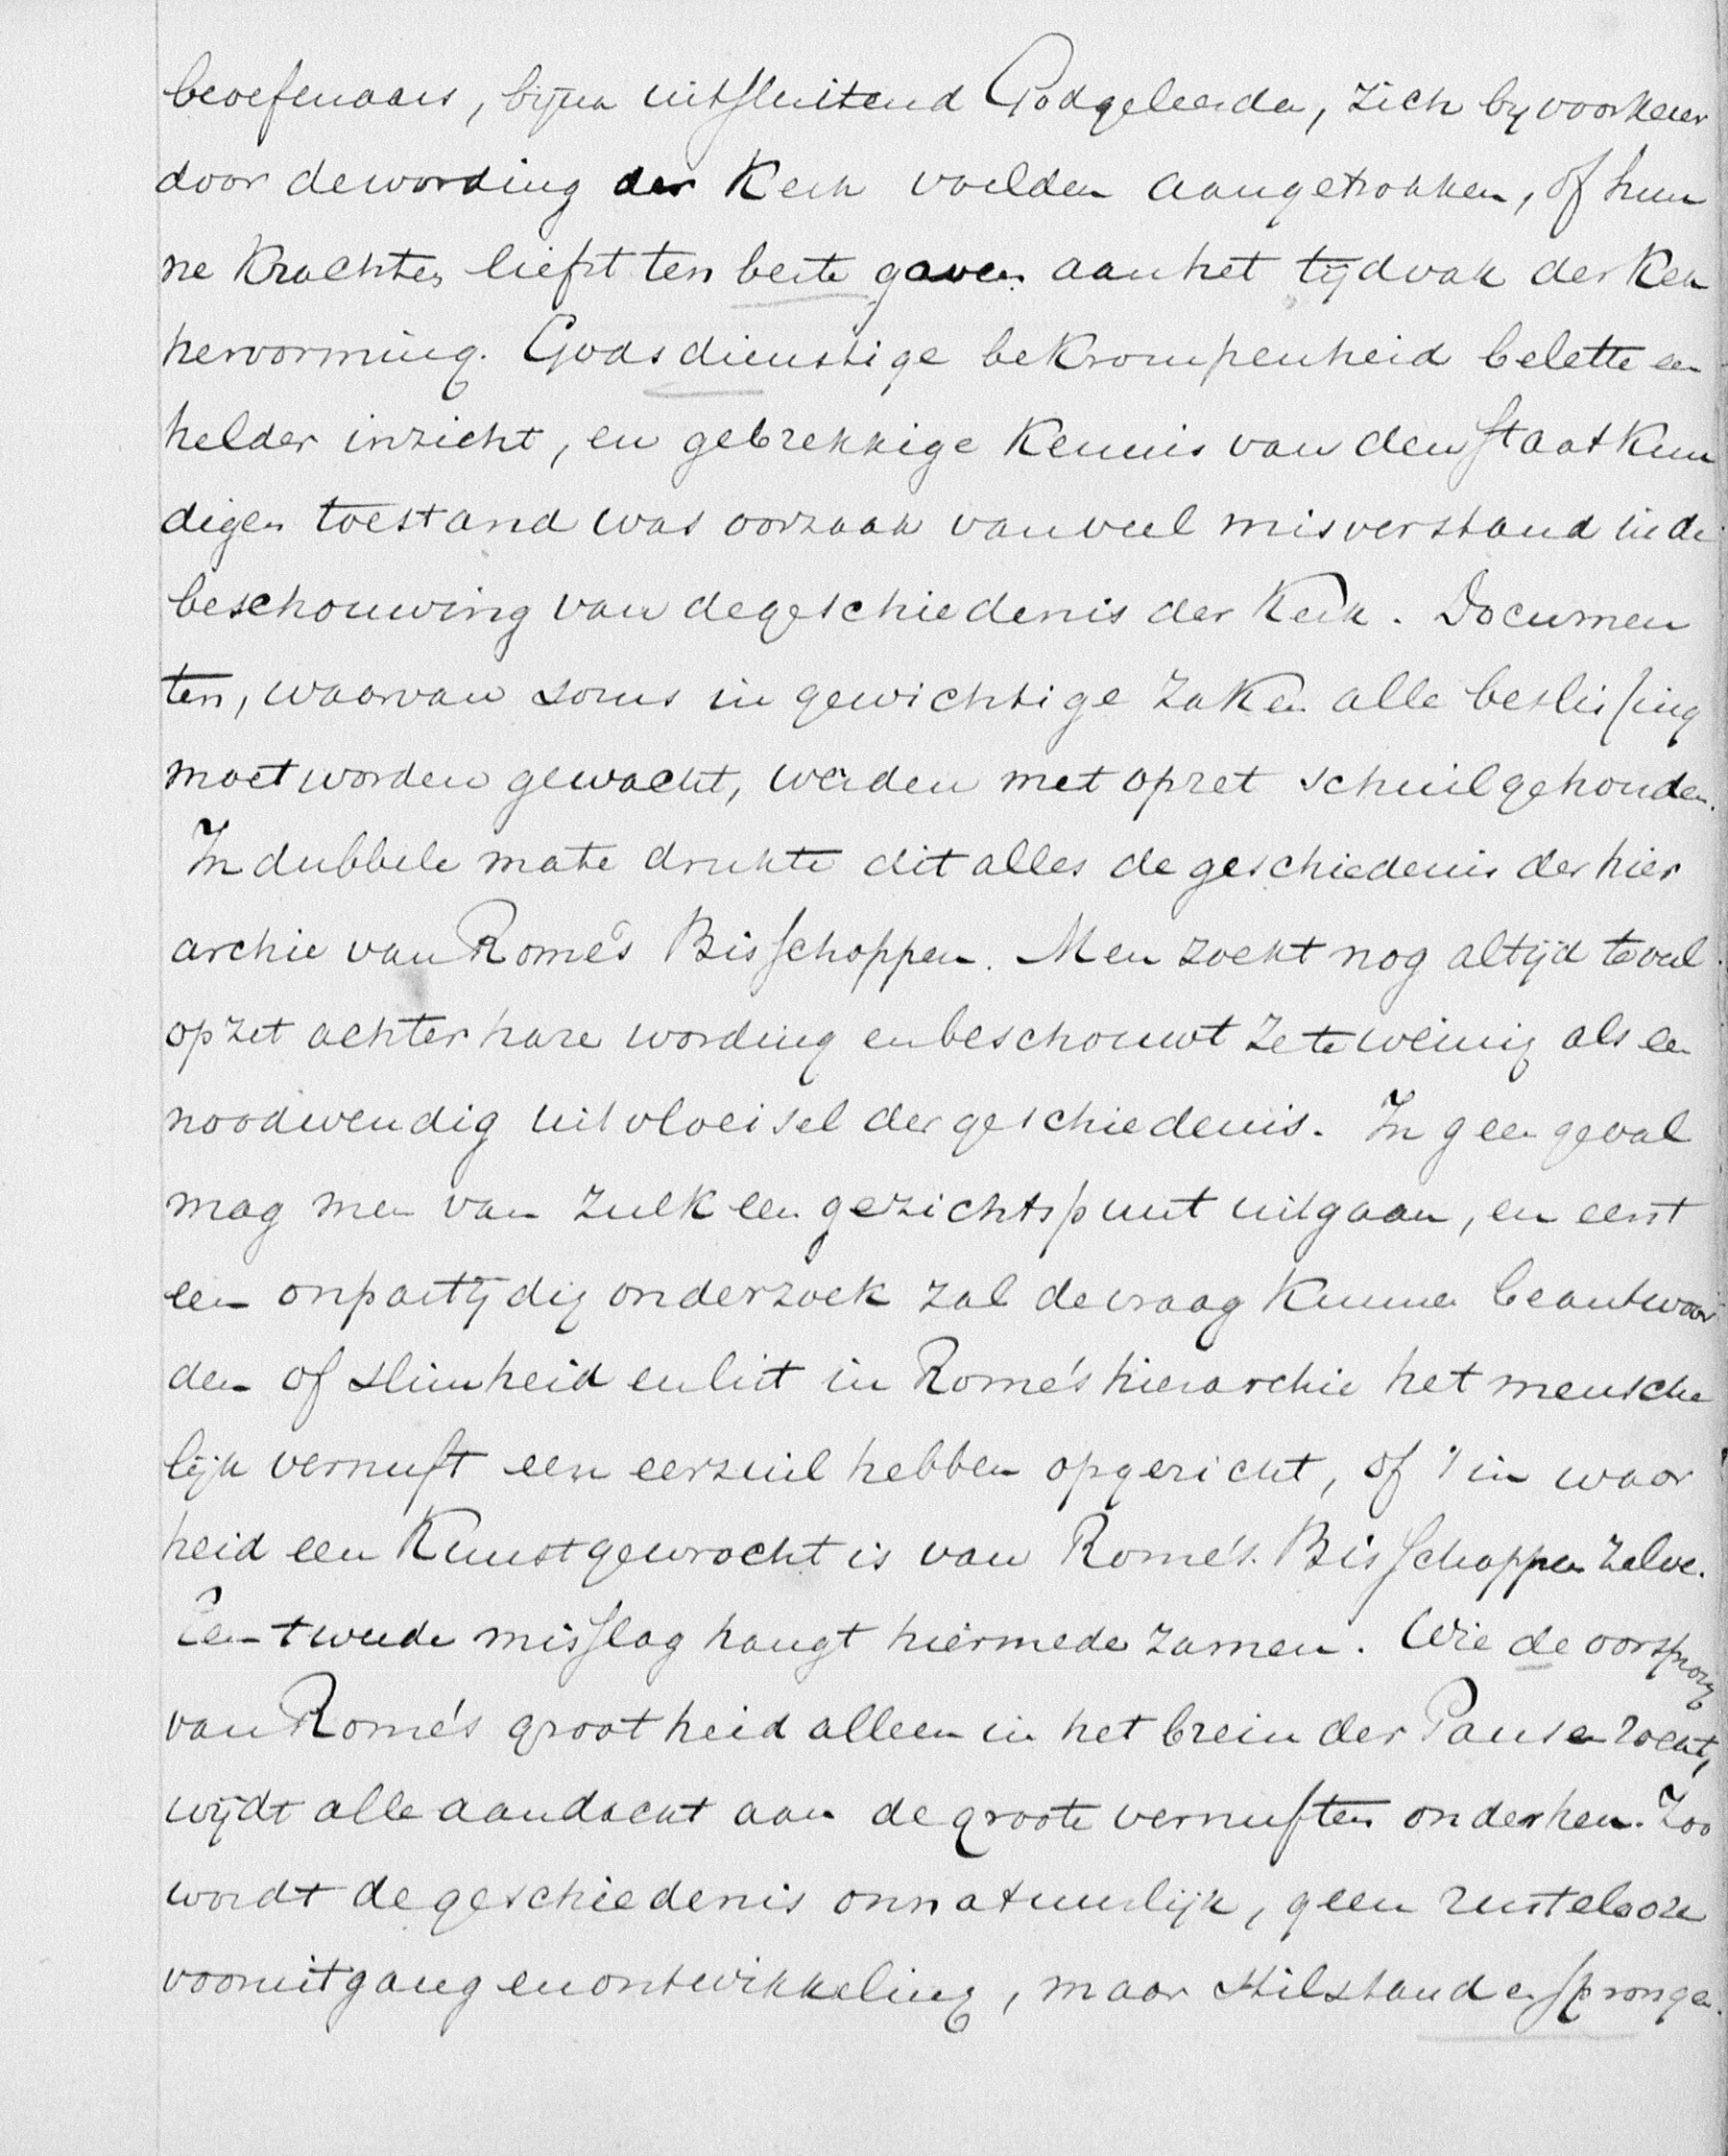 beoefenaars, bijna uitsluitend Godgeleerden, zich by voorkeur
door de wording der Kerk voelden aangetrokken, of hun
ne Krachten liefst ten beste gaven aan het tijdvak der Kerk
hervorming. Godsdienstige bekrompenheid belette een
helder inzicht, en gebrekkige Kennis van den staatkun
digen toestand was oorzaak van veel misverstand in de
beschouwing van de geschiedenis der Kerk. Documen
ten, waarvan soms in gewichtige zaken alle beslissing
moet worden gewacht, werden met opzet schuilgehouden.
In dubbele mate drukte dit alles de geschiedenis der hier
archie van Rome's Bisschoppen. Men zoekt nog altijd te veel
opzet achter hare wording en beschouwt ze te weinig als een
noodwendig uitvloeisel der geschiedenis. In geen geval
mag men van zulk een gezichtspunt uitgaan, en eerst
een onpartijdig onderzoek zal de vraag Kunnen beantwoor
den of slimheid en list in Rome's hierarchie het mensche
lijk vernuft een eerzuil hebben opgericht, of 't in waar
heid een Kunstgewrocht is van Rome's Bisschoppen zelve.
Een tweede misslag hangt hiermede zamen. Wie de oorsprong
van Rome's grootheid alleen in het brein der Pausen zoekt,
wijdt alle aandacht aan de groote vernuften onder hen. Zoo
wordt de geschiedenis onnatuurlijk, geen rustelooze
vooruitgang en ontwikkeling, maar stilstand en sprongen.